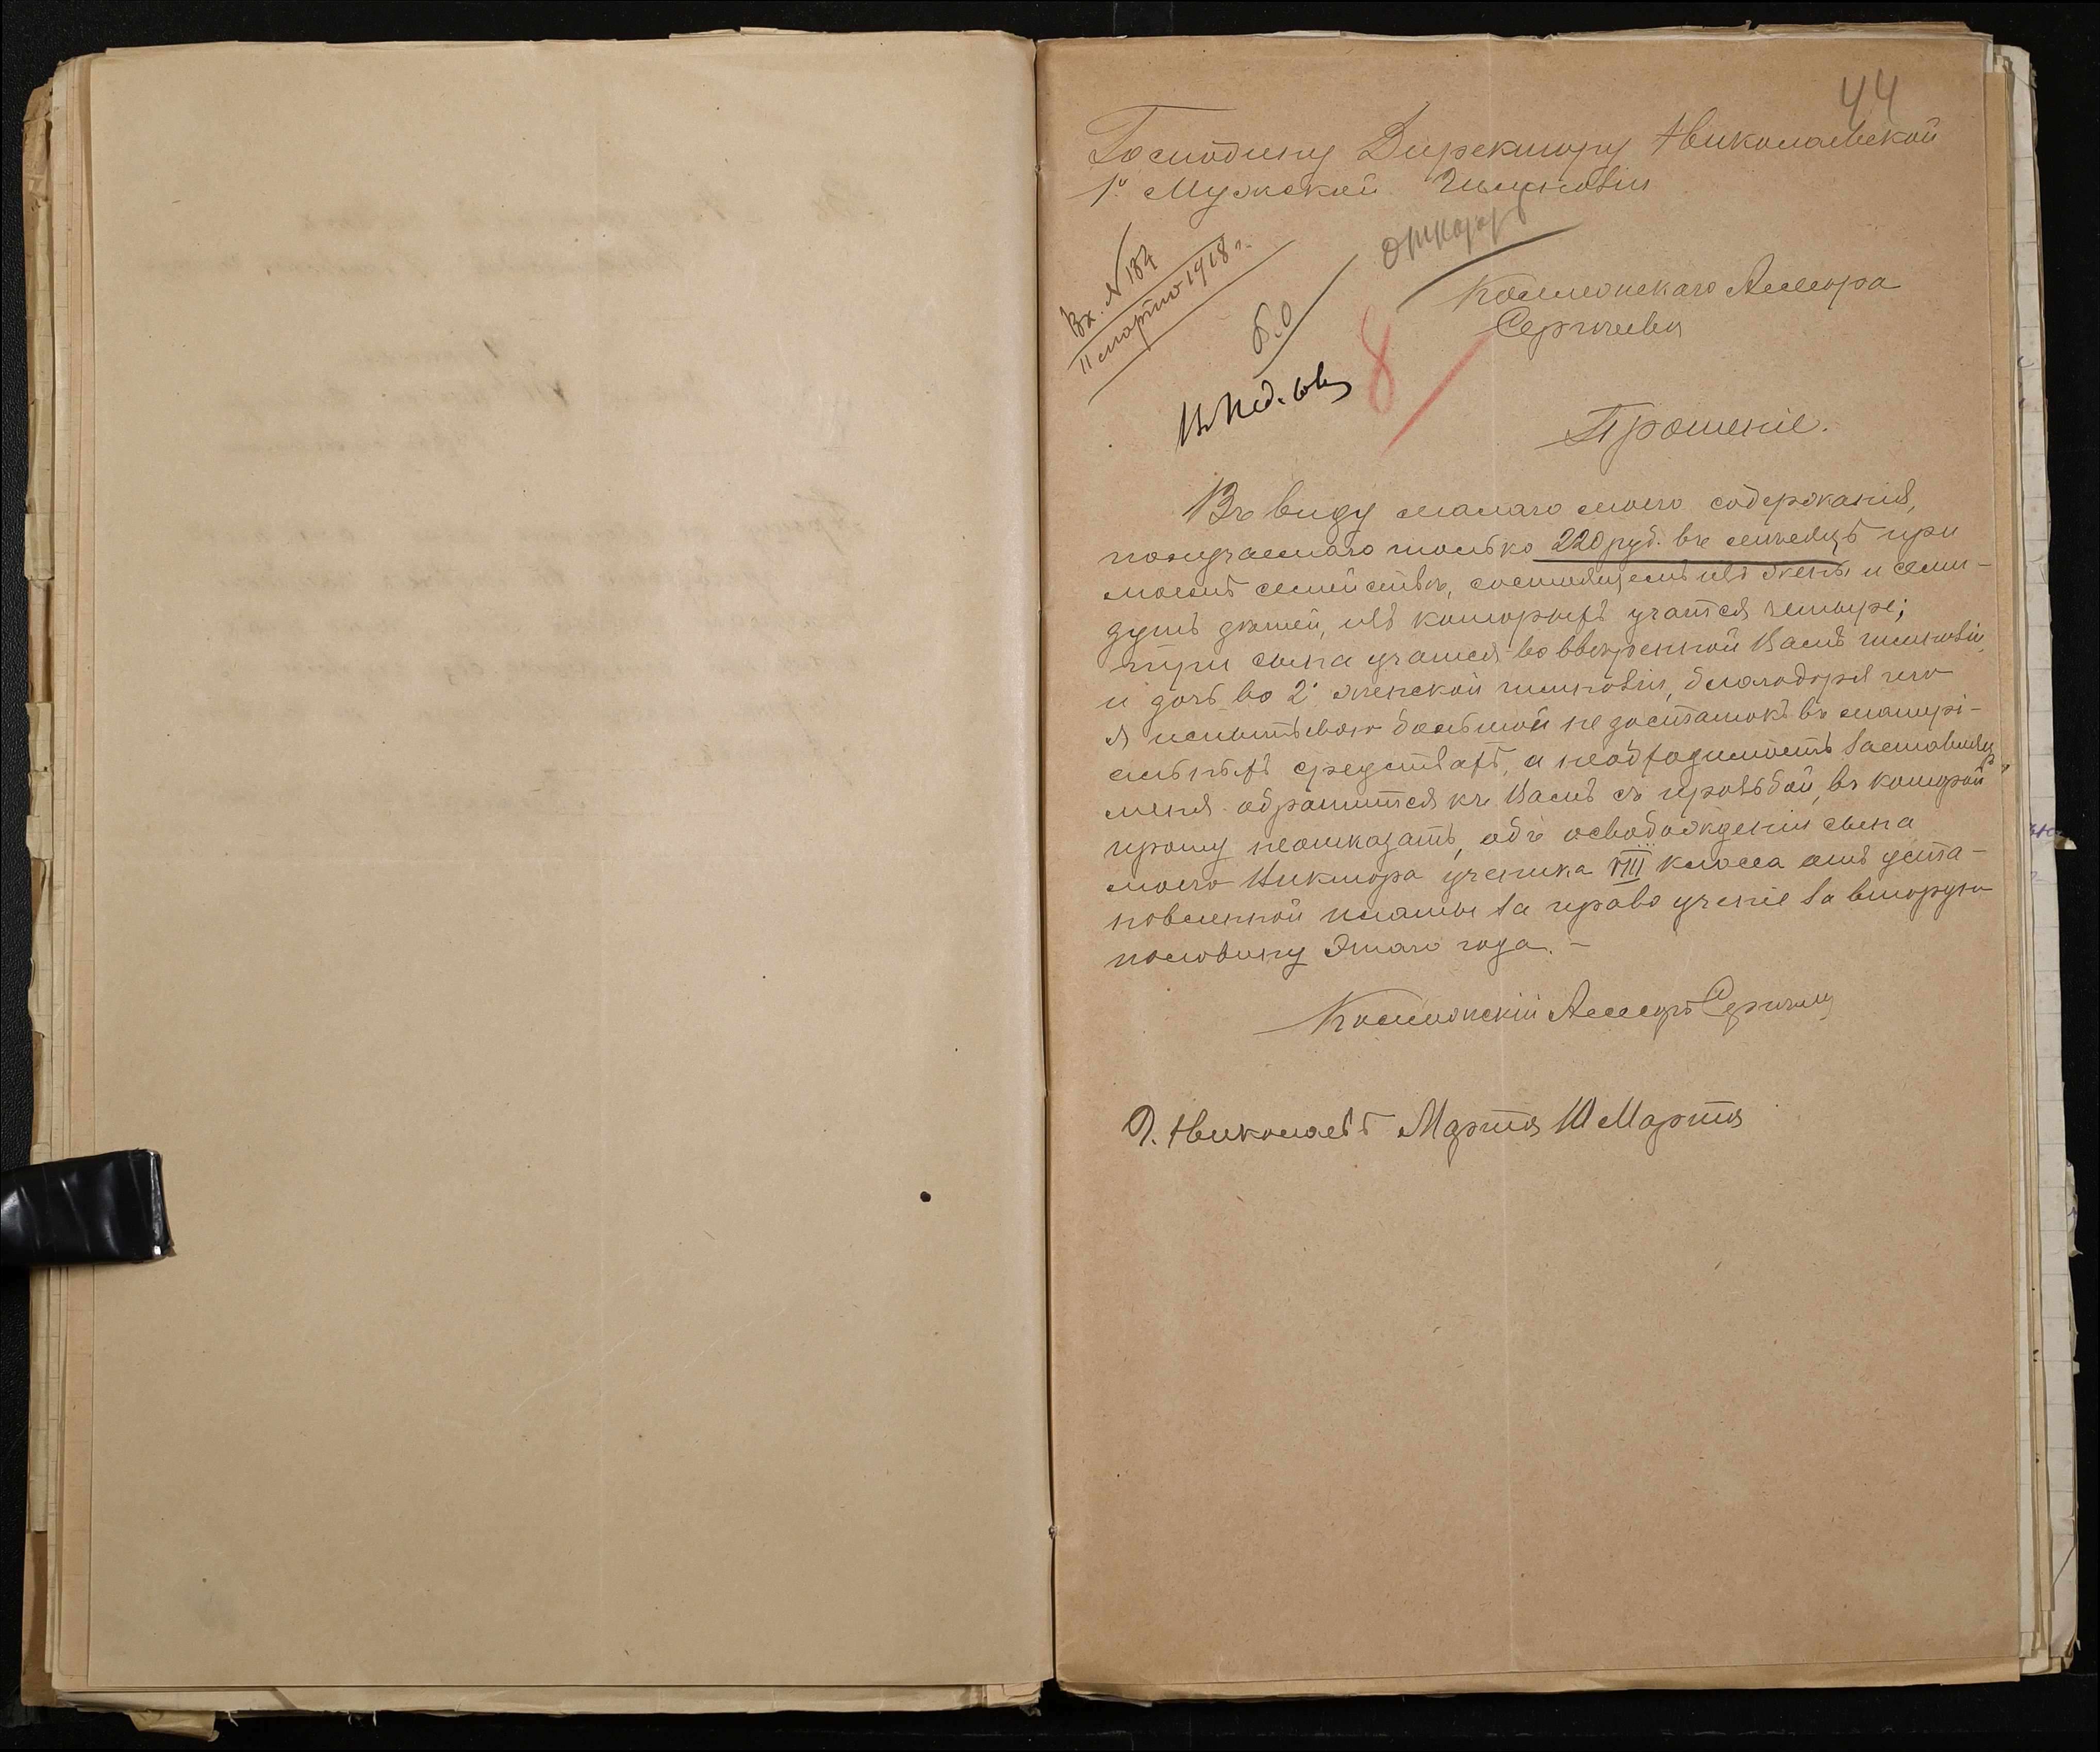 44
Господину Директору Николаевской
1й Мужской Гимназіи
Вх. № 184
11 марта 1918 г.
отказать
Коллежскаго Ассесора
Сергѣева
8
Прошеніе.
Въ виду малаго моего содержанія,
получаемаго только 220 руб. въ месяцъ при
моемъ семействѣ, состоящемъ изъ жены и семи-
дуть дѣтей, изъ которыхъ учатся четыре;
три сына учатся во ввѣренной Вамъ гимназіи,
и дочь во 2й женской гимназіи, благодаря чего
я испытываю большой недостатокъ въ матері-
альныхъ средствахъ, а необходимость заставляетъ
меня обратится къ Вамъ съ прозьбой, въ которой
прошу неотказать, объ освобожденіи сына
моего Виктора ученика VIII класса отъ уста-
новленной платы за право ученіе за вторую
половину этаго года. –
Коллежскій Ассесоръ Сергѣевъ
Г. Николаевъ Марта 10 Марта